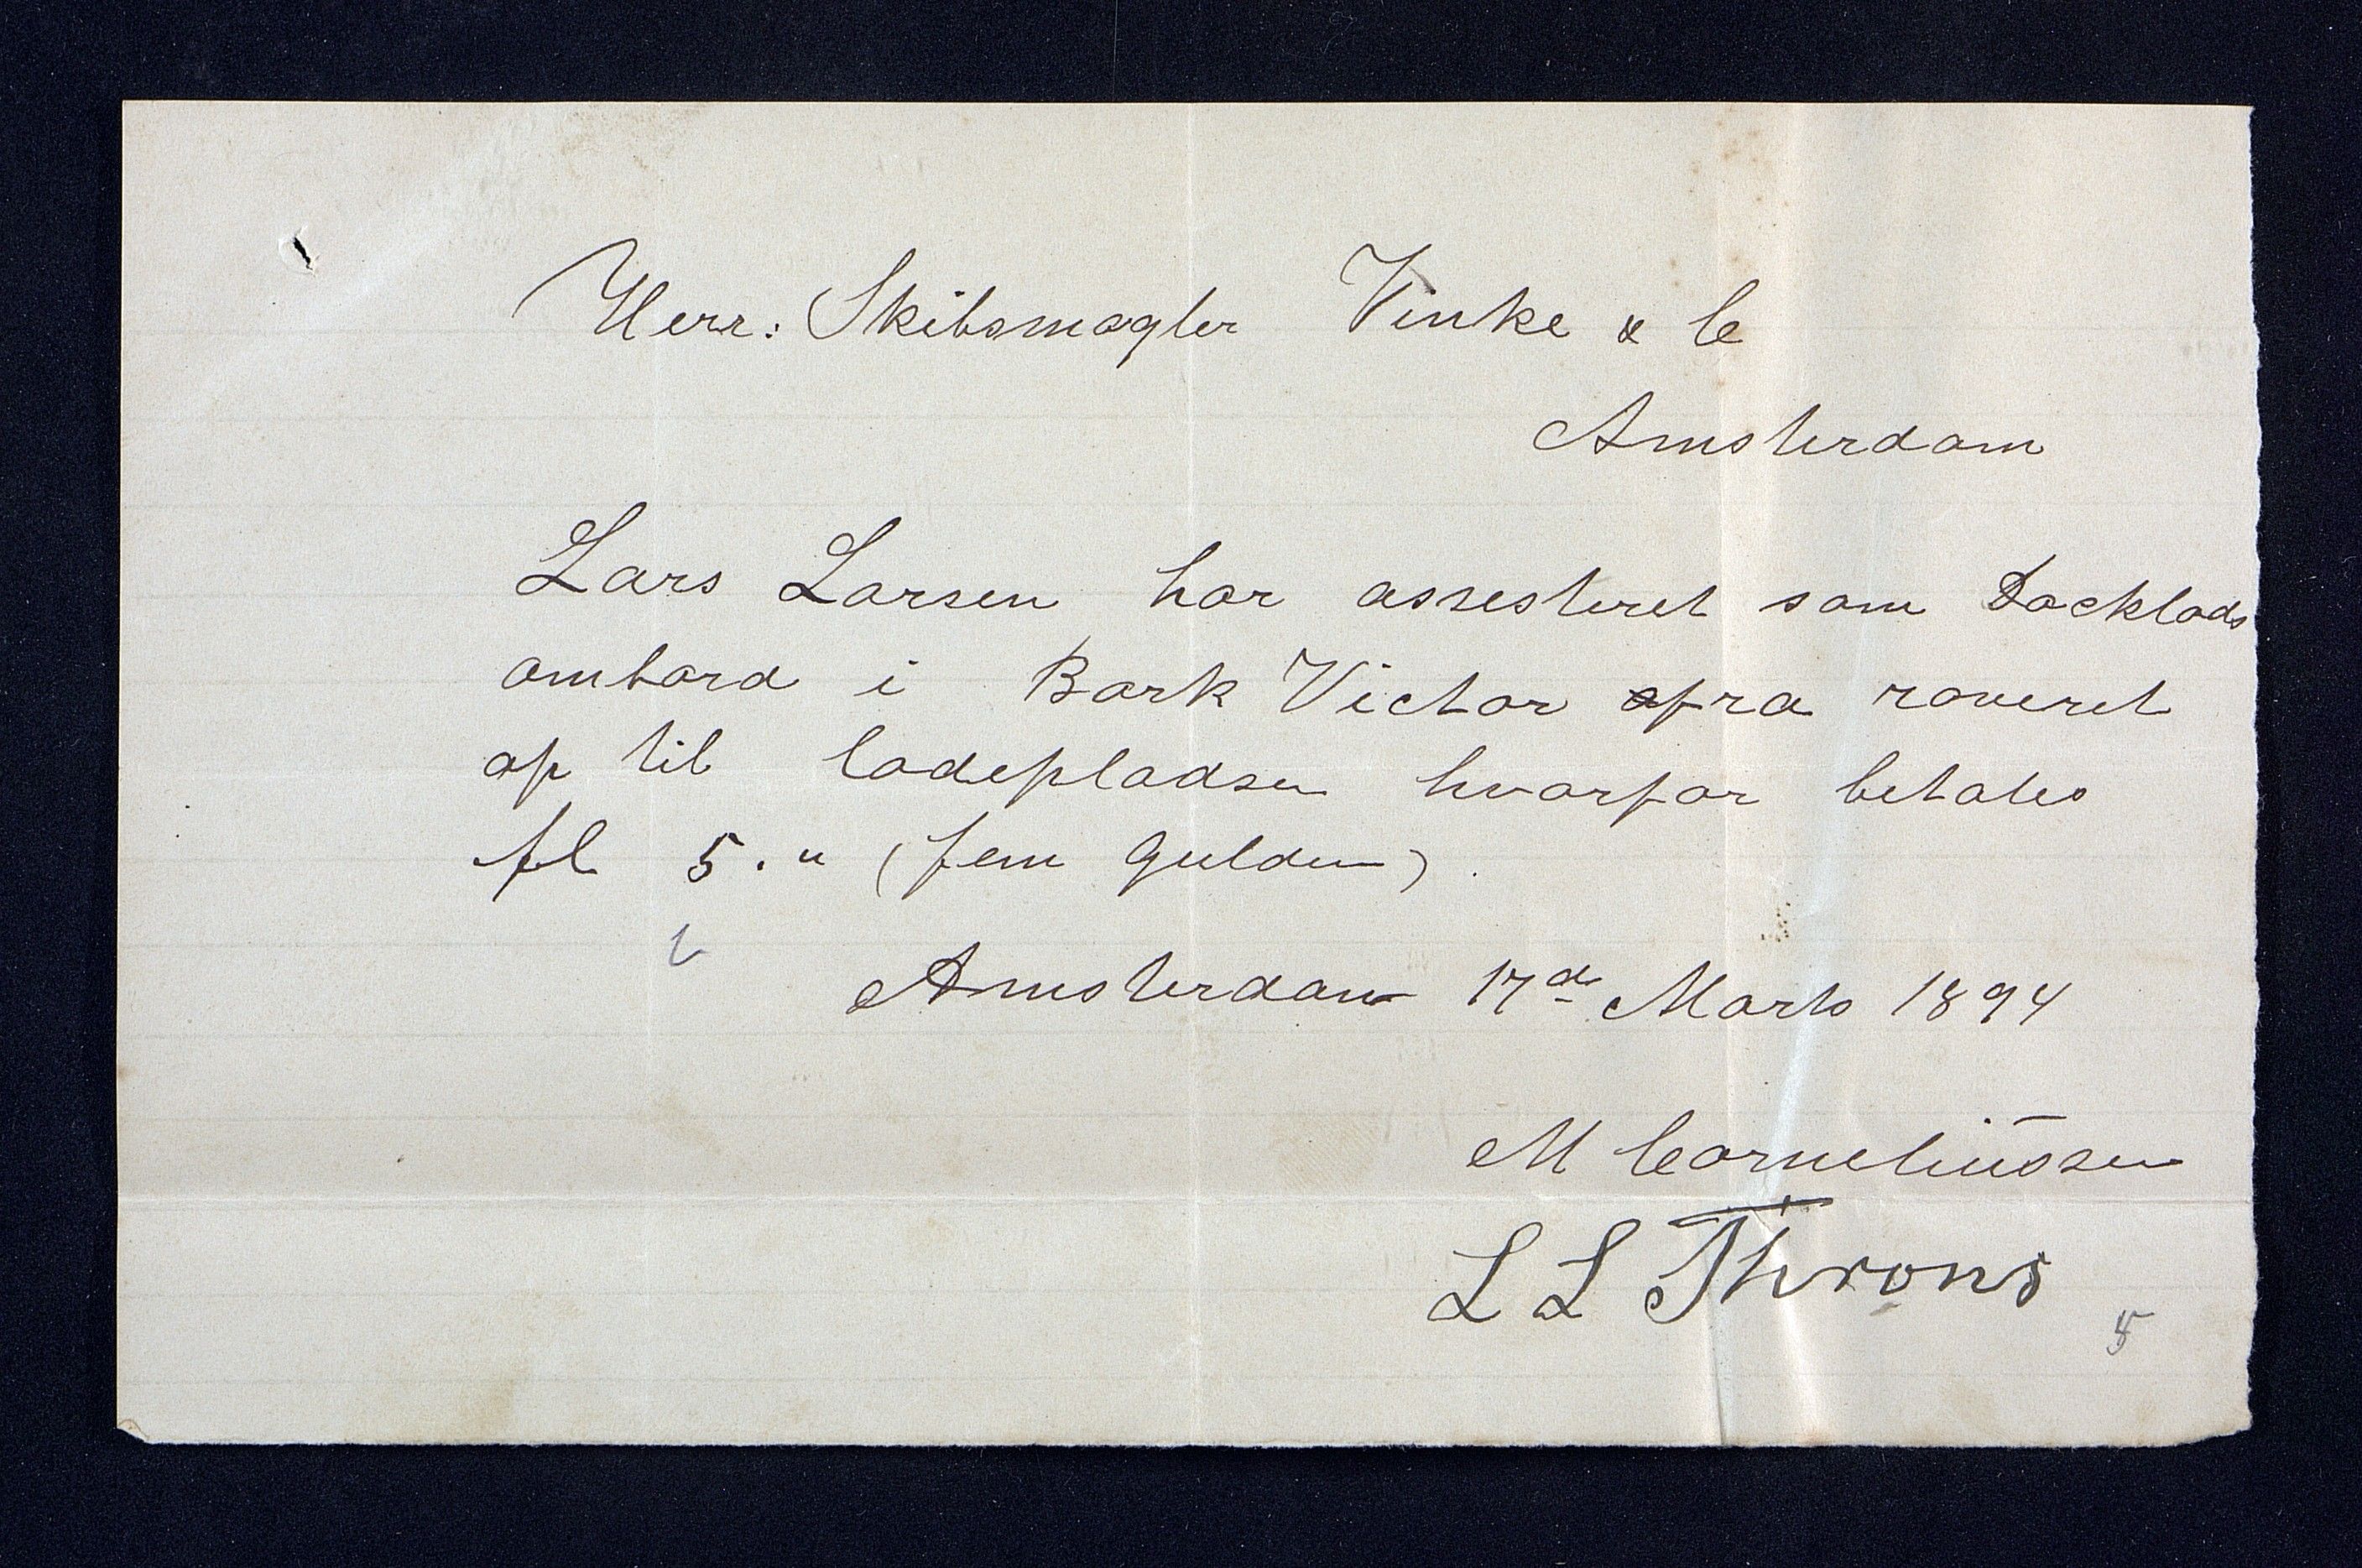 Herr: Skibsmægler Vinke & Co
Amsterdam
Lars Larsen har assesteret som Docklods
ombord i Bark Victor fra roveret
op til lodepladsen hvorfor betales
fl 5." (fem Gulden).
Amsterdam 17de Marts 1894
M Corneliussen
L L Throns
5